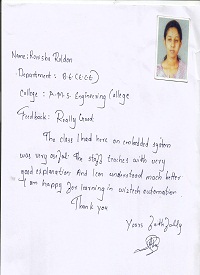 Name:
Department: B.E (E.C.E)
College: P.M.S. Engineering College
Feedback: Really Good.
The class I had here on embedded system
was very useful. The staff teaches with very
good explanation. And I can understand much better.
I am happy for learning in wiztech automation
Thank you
Yours faithfully